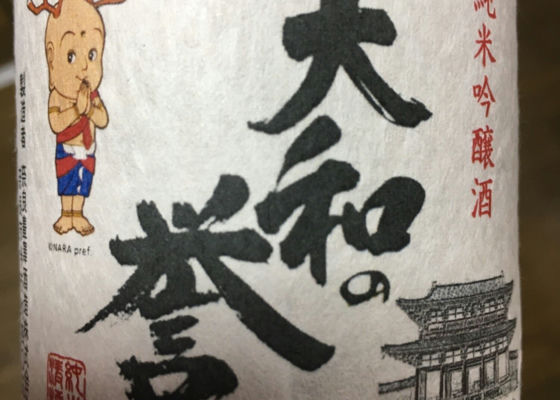 純米吟醸酒
大和の
誉
©NARA pref.
純米
清酒